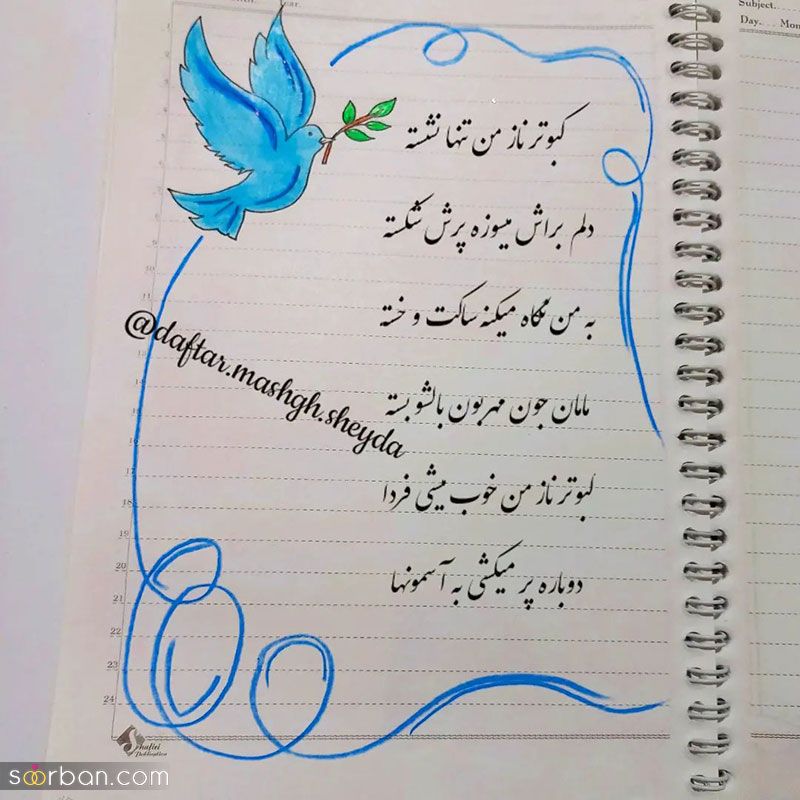 Subject.
Day. Mon
کبوتر ناز من تنها نشسته
دلم براش میسوزه پرش شکسته
به من نگاه میکنه ساکت و خسته
مامان جون مهربون بالشو بسته
کبوتر ناز من خوب میشی فردا
دوباره پر میکشی به آسمونها
@daftar.mashgh.sheyda
19
20
21
22
23
24
Publication
soorban.com